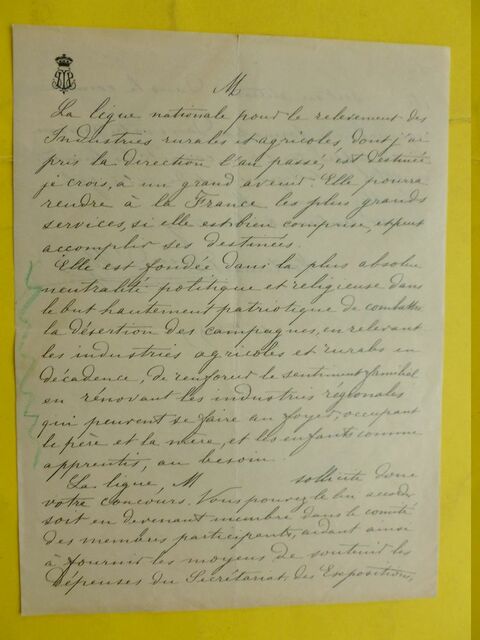 M
La ligue nationale pour le relèvement des
Industries rurales et agricoles, dont j'ai
pris la direction l'an passé, est destinée
je crois, à un grand avenir. Elle pourra
rendre à la France les plus grands
services, si elle est bien comprise, et peut
accomplir ses destinées.
Elle est fondée dans la plus absolue
neutralité politique et religieuse dans
le but hautement patriotique de combattre
la désertion des campagnes, en relevant
les industries agricoles et rurales en
décadence, de renforcer le sentiment familial
en rénovant les industries régionales
qui peuvent se faire au foyer, occupant
le père et la mère, et les enfants comme
apprentis, au besoin.
La ligue, M sollicite donc
votre concours. Vous pouvez le lui accorder
soit en devenant membre dans le comité
des membres participants, aidant ainsi
à fournir les moyens de soutenir les
Dépenses du Secrétariat, des Expositions,